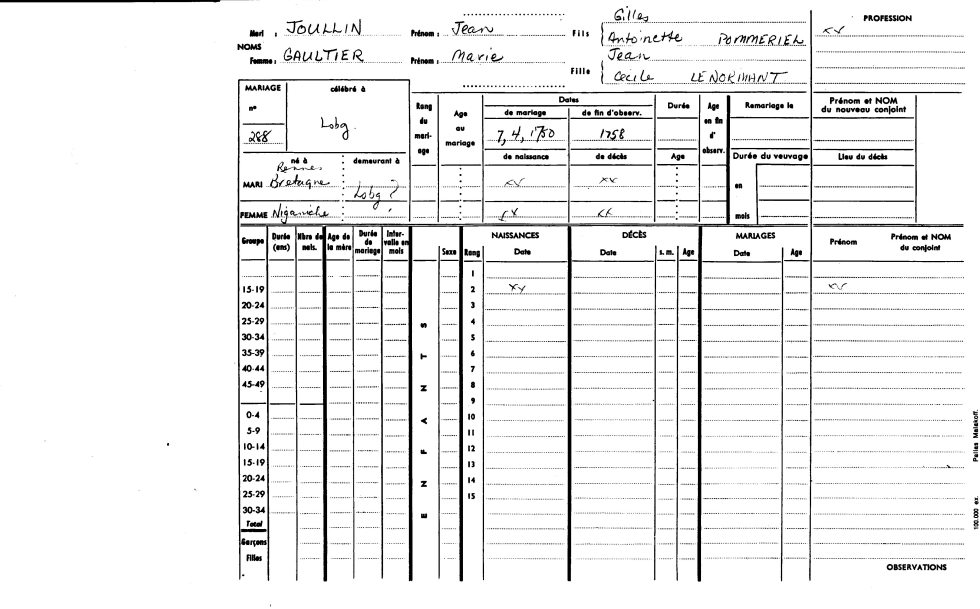 Gilles
PROFESSION
Mari : JOULLIN Prénom : Jean Fils Antoinette POMMERIEL
NOMS
Femme : GAULTIER Prénom : Marie Jean
Fille Cécile LENORMANT
MARIAGE célébré à
n° Lobg.
288
Rang du mariage Age au mariage Dates Durée Age en fin d'observ. Remariage le Prénom et NOM du nouveau conjoint
de mariage de fin d'observ.
7, 4, 1750 1758
de naissance de décès Age Durée du veuvage Lieu du décès
né à demeurant à
Rennes
MARI Bretagne Lobg ? en
FEMME Niganiche mois
Groupe Durée (ans) Nbre de nais. Age de la mère Durée de mariage Intervalle en mois Sexe Rang NAISSANCES DÉCÈS MARIAGES Prénom Prénom et NOM du conjoint
Date Date s. m. Age Date Age
ENFANTS
1
15-19 2
20-24 3
25-29 4
30-34 5
35-39 6
40-44 7
45-49 8
9
0-4 10
5-9 11
10-14 12
15-19 13
20-24 14
25-29 15
30-34
Total
Garçons
Filles
OBSERVATIONS
100.000 ex. Pailles Malakoff.